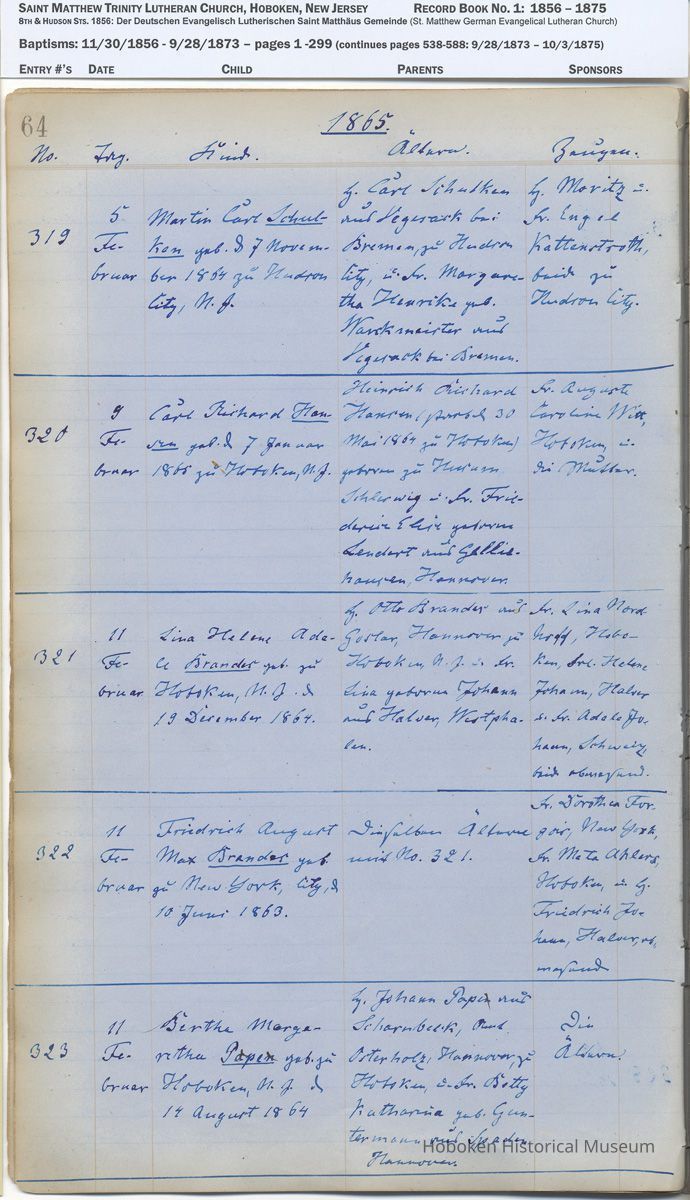 SAINT MATTHEW TRINITY LUTHERAN CHURCH, HOBOKEN, NEW JERSEY RECORD BOOK NO. 1: 1856 – 1875
8TH & HUDSON STS. 1856: Der Deutschen Evangelisch Lutherischen Saint Matthäus Gemeinde (St. Matthew German Evangelical Lutheran Church)
Baptisms: 11/30/1856 - 9/28/1873 – pages 1 -299 (continues pages 538-588: 9/28/1873 – 10/3/1875)
ENTRY #'S DATE CHILD PARENTS SPONSORS
64
1865.
No. Tag. Kind. Ältern. Zeugen.
319
5
Fe-
bruar
Martin Carl Schul-
ken geb. d 7 Novem-
ber 1864 zu Hudson
City, N. J.
H. Carl Schulken
aus Vegesack bei
Bremen, zu Hudson
City, u. Fr. Margare-
tha Henrike geb.
Warckmeister aus
Vegesack bei Bremen.
H. Moritz u.
Fr. Engel
Kattenstroth,
beide zu
Hudson City.
320
9
Fe-
bruar
Carl Richard Han-
sen geb. d 7 Januar
1865 zu Hoboken, N. J.
Heinrich Richard
Hansen (starb d 30
Mai 1864 zu Hoboken)
geboren zu Husum
Schleswig u. Fr. Frie-
dericke Elise geborene
Lendert aus Gellie-
hausen, Hannover.
Fr. Auguste
Caroline Witt,
Hoboken, u.
die Mutter.
321
11
Fe-
bruar
Lina Helene Ade-
le Brandes geb. zu
Hoboken, N. J. d
19 December 1864.
H. Otto Brandes aus
Goslar, Hannover zu
Hoboken, N. J. u. Fr.
Lina geborene Johann
aus Halver, Westpha-
len.
Fr. Lina Nord-
hoff, Hobo-
ken, Frl. Helene
Johann, Halver
u. Fr. Adele Jo-
hann, Schweiz,
beide abwesend.
322
11
Fe-
bruar
Friedrich August
Max Brandes geb.
zu New York, City, d
10 Juni 1863.
Dieselben Ältern
wie No. 321.
Fr. Dorothea For-
gois, New York,
Fr. Meta Ahlers,
Hoboken, u. H.
Friedrich Jo-
hann, Halver, ab-
wesend
323
11
Fe-
bruar
Bertha Marga-
retha Papen geb. zu
Hoboken, N. J. d
14 August 1864
H. Johann Papen aus
Scharmbeck, Amt
Osterholz, Hannover, zu
Hoboken, u. Fr. Betty
Katharina geb. Gun-
termann aus Spaden
Hannover.
Die
Ältern.
Hoboken Historical Museum